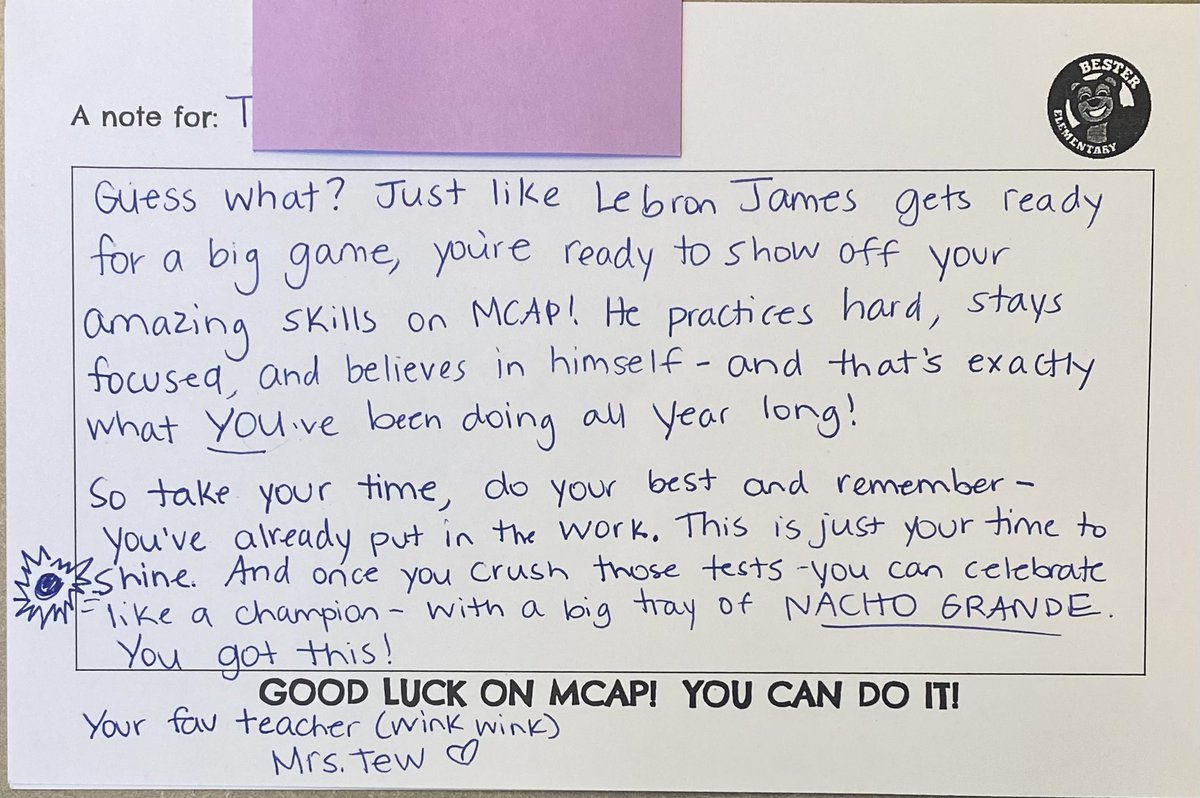 BESTER
ELEMENTARY
A note for: T
Guess what? Just like Lebron James gets ready
for a big game, you're ready to show off your
amazing skills on MCAP! He practices hard, stays
focused, and believes in himself - and that's exactly
what YOU've been doing all year long!
So take your time, do your best and remember -
you've already put in the work. This is just your time to
shine. And once you crush those tests - you can celebrate
like a champion - with a big tray of NACHO GRANDE.
You got this!
GOOD LUCK ON MCAP! YOU CAN DO IT!
Your fav teacher (wink wink)
Mrs. Tew ♡